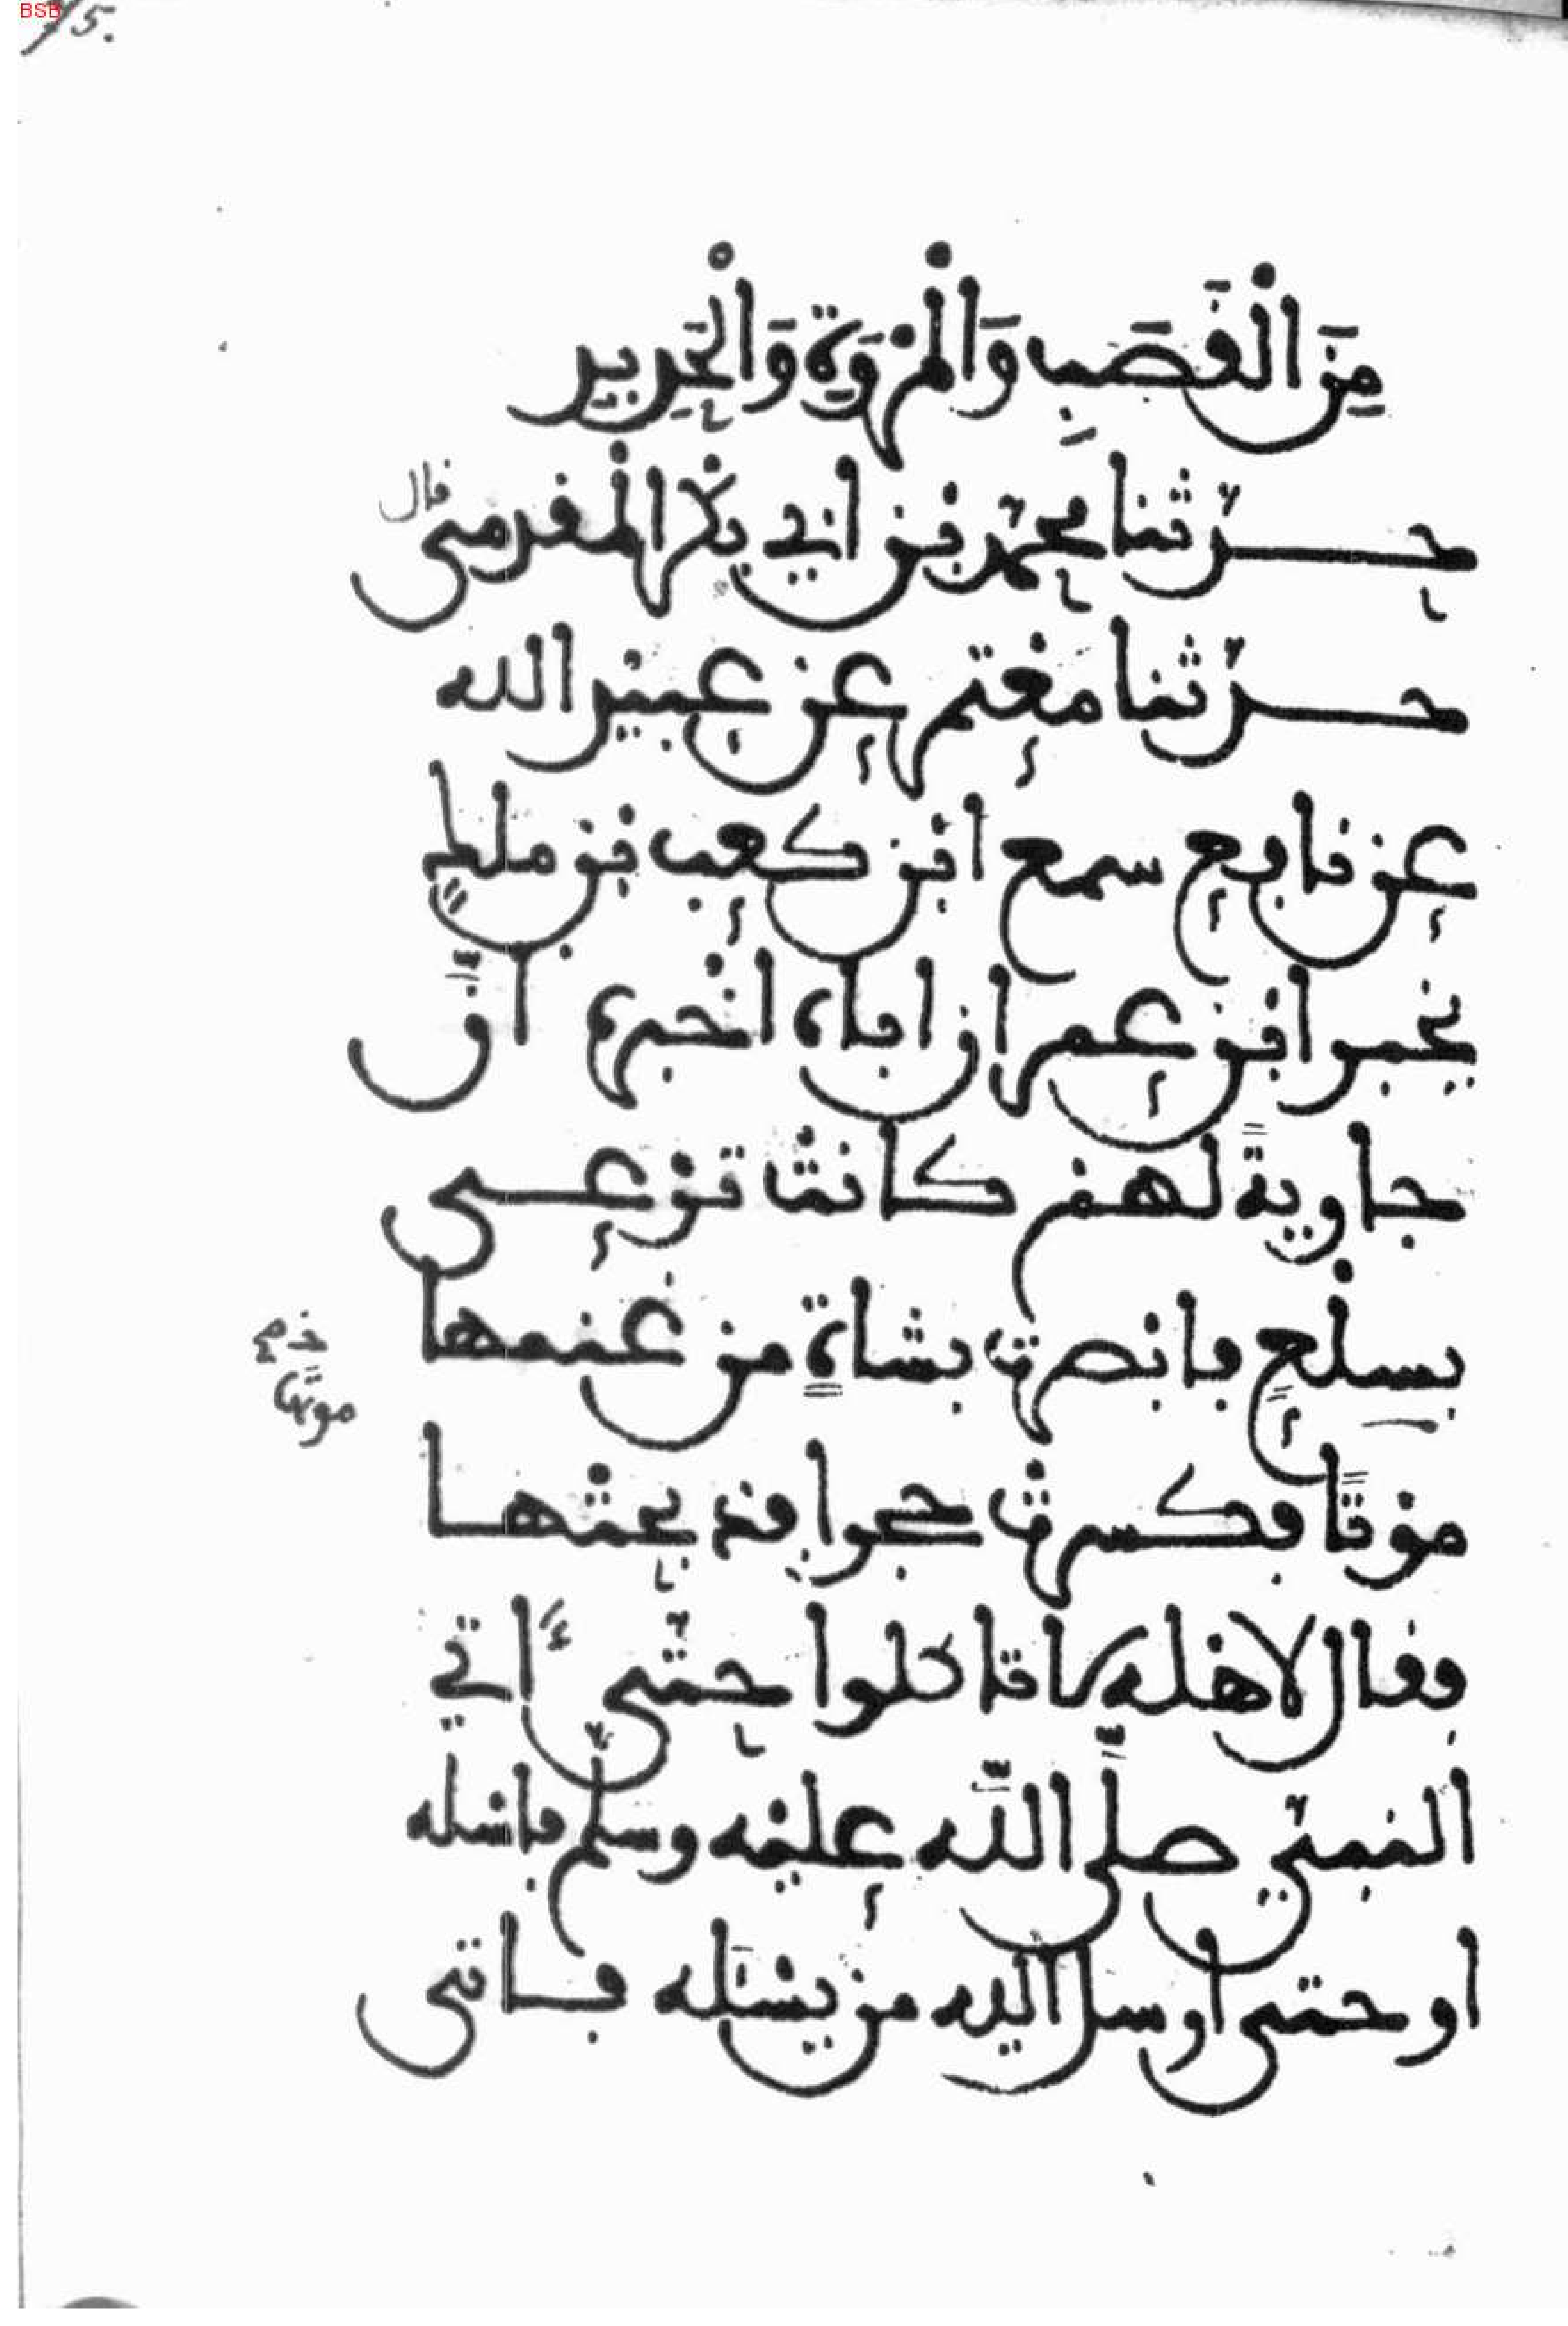 BSB
75.
مِنَ الْقَصَبِ وَالْمَرْوَةِ وَالْحَدِيدِ
حدّثنا محمّد بْن ابي بكْر الْمقدمي قال
حدّثنا معْتمر عن عبيْد الله
عن نافع سمع ابْن كعب بْن ملكٍ
يخْبر ابْن عمر ان اباه اخْبره انَّ
جاريةً لهمْ كانتْ ترْعى
بسلْعٍ فابصرت بشاةٍ من غنمها
موتها
موْتًا فكسرتْ حجرا فذبحتْها
فقال لاهْله لا تاكلوا حتّى اتي
النبيّ صلَّى اللَّه عليْه وسلّم فاسْله
او حتى ارسل اليه من يسْله فاتى